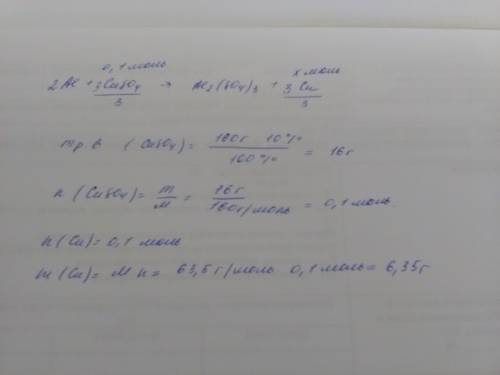 0,1 моль x моль
2Al + 3CuSO4 → Al2(SO4)3 + 3Cu
3 3
mр.в (CuSO4) = 160г 10% / 100% = 16г
n (CuSO4) = m/M = 16г / 160г/моль = 0,1 моль.
n(Cu) = 0,1 моль
m(Cu) = M n = 63,5г/моль 0,1 моль = 6,35г